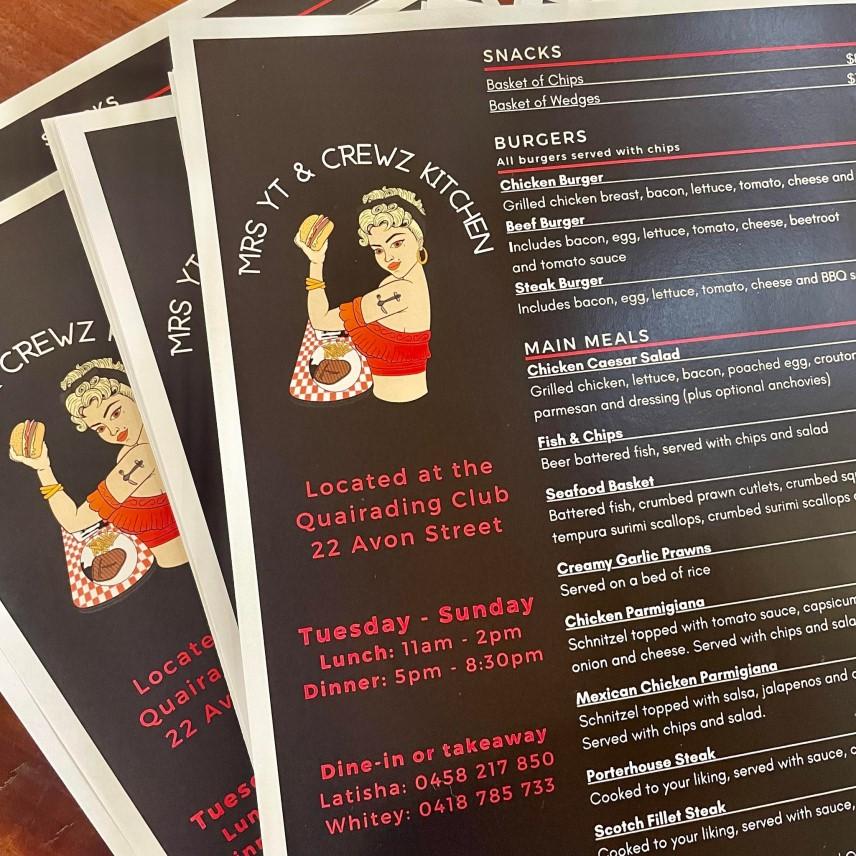 MRS YT & CREWZ KITCHEN
Located at the
Quairading Club
22 Avon Street
Tuesday - Sunday
Lunch: 11am - 2pm
Dinner: 5pm - 8:30pm
Dine-in or takeaway
Latisha: 0458 217 850
Whitey: 0418 785 733
SNACKS
Basket of Chips
Basket of Wedges
BURGERS
All burgers served with chips
Chicken Burger
Grilled chicken breast, bacon, lettuce, tomato, cheese and
Beef Burger
Includes bacon, egg, lettuce, tomato, cheese, beetroot
and tomato sauce
Steak Burger
Includes bacon, egg, lettuce, tomato, cheese and BBQ
MAIN MEALS
Chicken Caesar Salad
Grilled chicken, lettuce, bacon, poached egg,
parmesan and dressing (plus optional anchovies)
Fish & Chips
Beer battered fish, served with chips and salad
Seafood Basket
Battered fish, crumbed prawn cutlets, crumbed
tempura surimi scallops, crumbed surimi scallops
Creamy Garlic Prawns
Served on a bed of rice
Chicken Parmigiana
Schnitzel topped with tomato sauce,
onion and cheese. Served with chips and
Mexican Chicken Parmigiana
Schnitzel topped with salsa, jalapenos and
Served with chips and salad.
Porterhouse Steak
Cooked to your liking, served with sauce,
Scotch Fillet Steak
Cooked to your liking, served with sauce,
CREWZ
MRS YT
22